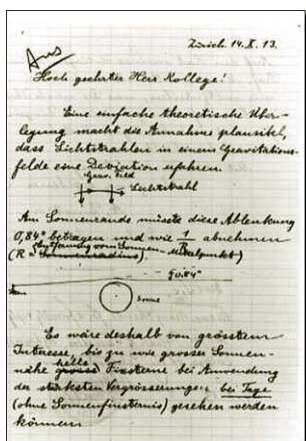 Zürich. 14. X. 13.
Hoch geehrter Herr Kollege!
Eine einfache theoretische Über-
legung macht die Annahme plausibel,
dass Lichtstrahlen in einem Gravitations-
felde eine Deviation erfahren.
Grav. Feld
Lichtstrahl
Am Sonnenrande müsste diese Ablenkung
0,84" betragen und wie 1/R abnehmen
(R = Sonnenradius). Mittelpunkt)
0.84"
Sonne
Es wäre deshalb von grösstem
Interesse, bis zu wie grosser Sonnen-
nähe grosse helle Fixsterne bei Anwendung
der stärksten Vergrösserungen bei Tage
(ohne Sonnenfinsternis) gesehen werden
können.